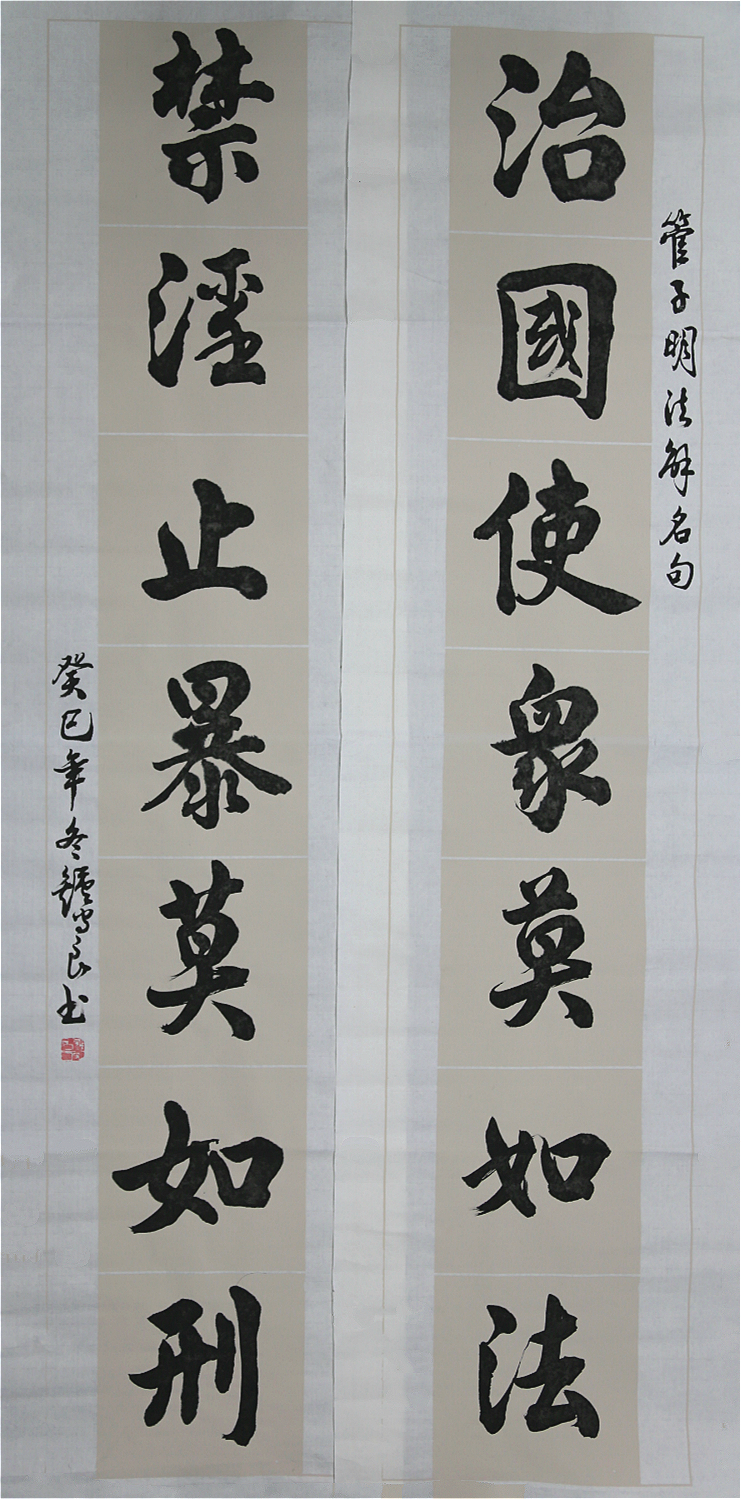 管子明法解名句
治國使衆莫如法
禁淫止暴莫如刑
癸巳年冬鐘守良书